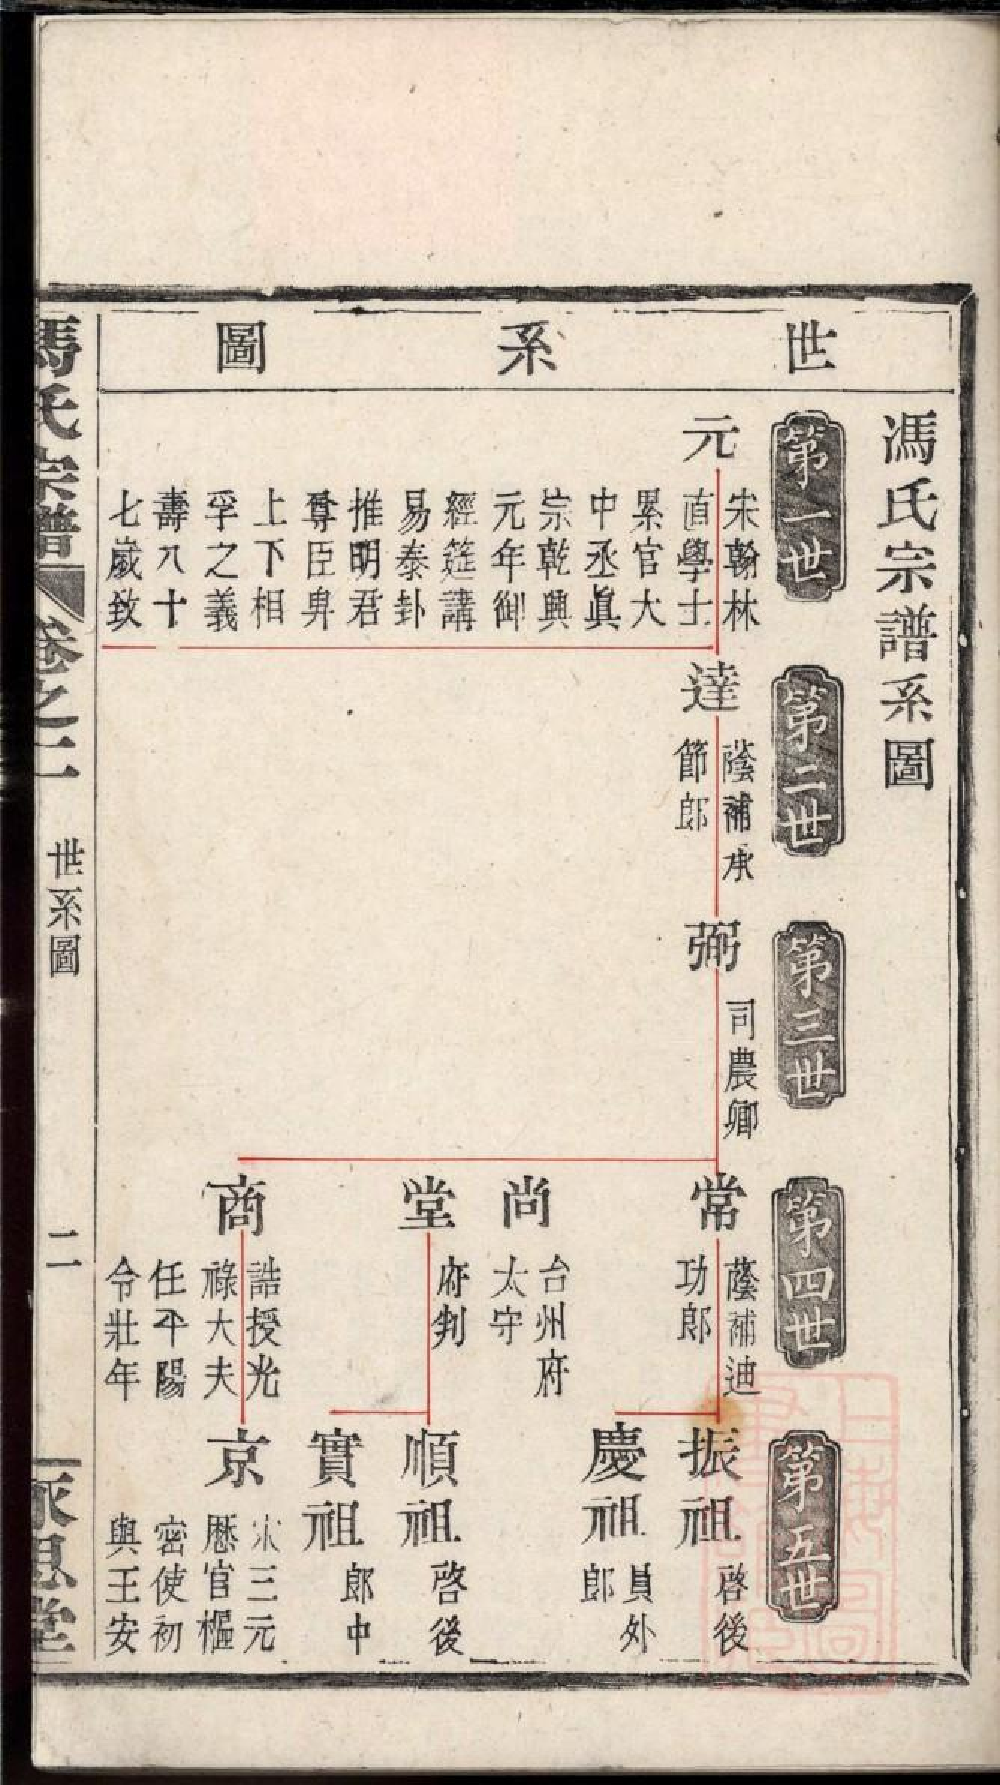 世系圖
馮氏宗譜系圖
第一世
元
宋翰林
直學士
累官大
中丞眞
宗乾興
元年御
經筵講
易泰卦
推明君
尊臣卑
上下相
孚之義
壽八十
七歲致
第二世
達
蔭補承
節郎
第三世
弼
司農卿
第四世
常
蔭補迪
功郎
尚
台州府
太守
堂
府判
商
誥授光
祿大夫
任平陽
令壯年
第五世
振祖
啓後
慶祖
員外
郎
順祖
啓後
實祖
郎中
京
宋三元
歷官樞
密使初
與王安
馮氏宗譜
卷之二
世系圖
二
永思堂